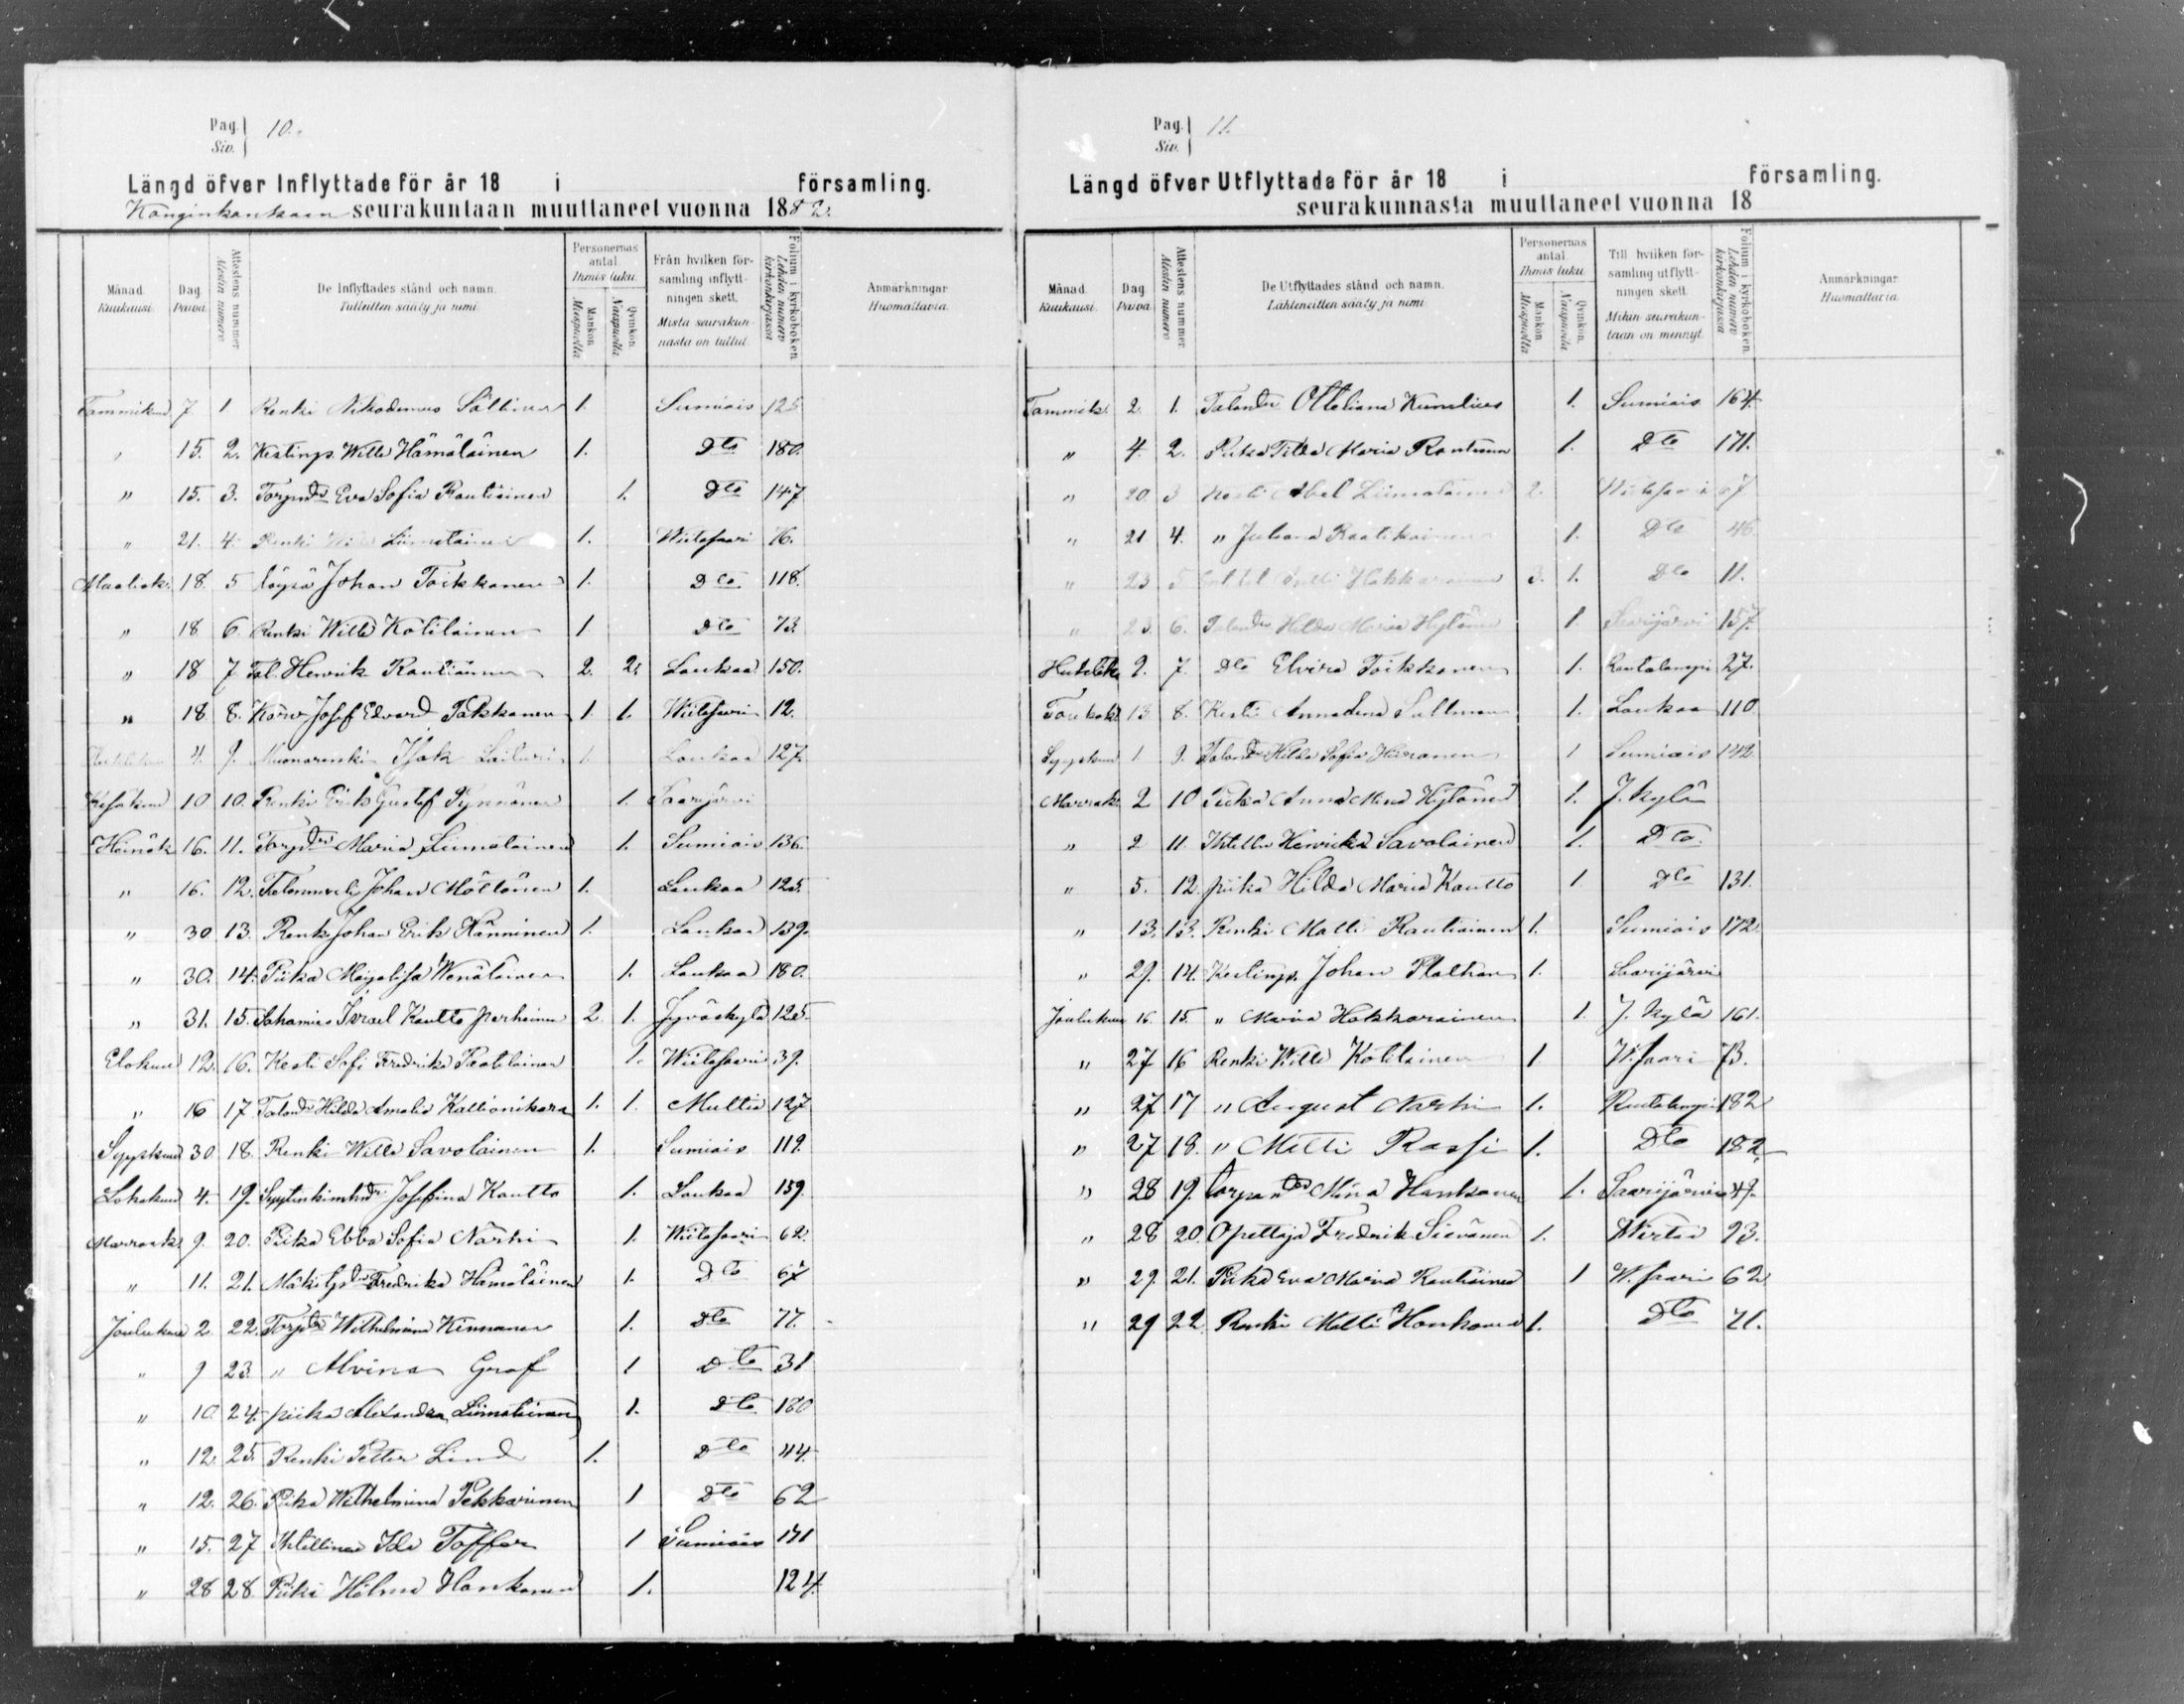 Pag. Siv. 10.
Längd öfver Inflyttade för år 18 i församling.
Konginkankaan seurakuntaan muuttaneet vuonna 1882.
Månad. Kuukausi.
Dag Päivä
Attestens nummer Atestin numero
De Inflyttades stånd och namn. Tulleitten sääty ja nimi.
Personernas antal Ihmis luku.
Mankön Miespuolia
Qvinkön Naispuolia
Från hvilken församling inflyttningen skett. Mista seurakunnasta on tullut.
Folium i kyrkoboken. Lehden numero kirkonkirjassa
Anmärkningar Huomattavia.
Tammikuu 7 1 Renki Nikodemus 1. Sumiais 125
" 15. 2. Kestings. Wille Hämäläinen 1. Dto 180.
" 15. 3. Torpndr Eva Sofia Rautiainen 1. Dto 147
" 21. 4. Renki Liimatainen 1. Wiitasaari 76.
Maalisk. 18. 5 Johan Toikkanen 1. Dto 118.
" 18 6. Renki Wille Kotilainen 1 Dto 73.
" 18 7 Tal. Henrik Rautiainen 2. 2. Laukaa 150.
" 18 8. Josef Edvard Pakkanen 1. 1. Wiitasaari 12.
4. 9. Isak 1. Laukaa 127.
Kesäkuu 10 10. Renki Erik Gustaf Pynnönen 1. Saarijärvi
Heinäk. 16. 11. Torpdr Maria Liimatainen 1. Sumiais 136.
" 16. 12. Johan Möttönen 1. Laukaa 125.
" 30 13. Renki Johan Erik Hänninen 1. Laukaa 139.
" 30. 14. Piika Majalisa Wenäläinen 1. Laukaa 180.
" 31. 15. Israel Kautto perheinen 2 1. Jyväskylä 125.
Elokuu 12. 16. Kesti Sofi Fredrika 1. Wiitasaari 39.
" 16 17 Talondr Hilda Amalia Kallionikara 1. 1. Multia 127
Syyskuu 30 18. Renki Wille Savolainen 1. Sumiais 119.
Lokakuu 4. 19. Josefina Kautto 1. Laukaa 159.
Marrask. 9. 20. Piika Ebba Sofia Närhi 1. Wiitasaari 62.
" 11. 21. Fredrika Hämäläinen 1. Dto 67
Joulukuu 2. 22. Torpdr Wilhelmina Kinnanen 1. Dto 77.
" 9 23. " Alvina Graf 1 Dto 31
" 10 24. piika Alexandra Liimatainen 1. Dto 180
" 12. 25. Renki Petter Lind 1. Dto 44.
" 12. 26. Piika Wilhelmina Pekkarinen 1 Dto 62
" 15. 27 Itsellinen Ida Toffer 1 Sumiais 171
" 28 28. Piika Hilma Honkonen 1. 124.
Pag. Siv. 11.
Längd öfver Utflyttade för år 18 i församling.
seurakunnasta muuttaneet vuonna 18
Månad. Kuukausi.
Dag Päivä
Attestens nummer Atestin numero
De Utflyttades stånd och namn. Lähteneitten sääty ja nimi
Personernas antal Ihmis luku
Mankön Miespuolia
Qvinkön. Naispuolia
Till hvilken församling utflyttningen skett. Mihin seurakuntaan on mennyt.
Folium i kyrkoboken. Lehden numero kirkonkirjassa
Anmärkningar Huomattavia
Tammik. 2. 1. Talondr Otteliana 1. Sumiais 164.
" 4. 2. Piika Tilda Maria 1. Dto 171.
" 20. 3 Kesti Abel Liimatainen 2. Wiitasaari 7
" 21 4. " Juliana Raatikainen 1. Dto 46
" 23 5 Hakkarainen 3. 1. Dto 11.
" 23. 6. Talondr Hilda Maria Hytönen 1 Saarijärvi 157.
Huhtik. 2. 7. Dto Elvira Toikkonen 1. Rautalampi 27.
Toukok. 13 8. Kesti 1. Laukaa 110
Syyskuu 1 9. Talondr Hilda Sofia 1 Sumiais 142
Marrask. 2 10 Piika Anna Mina Hytönen 1. J. kylä
" 2 11. Itsellin Henrika Savolainen 1. Dto.
" 5. 12. piika Hilda Maria Kautto 1 Dto 131.
" 13. 13. Renki Matti Rautiainen 1. Sumiais 172.
" 29. 14. Kestings. Johan Plathan 1. Saarijärvi
Joulukuu 16. 15. " Maria Hakkarainen 1. J. kylä 161.
" 27 16 Renki Wille Kotilainen 1 W. saari 73.
" 27 17 " August Närhi 1. Rautalampi 182
" 27 18. " Matti Rossi 1. Dto 182
" 28 19. torpandr Mina Honkonen 1. Saarijärvi 49.
" 28 20. Opettaja Fredrik Sievänen 1. Wirtoi 93.
" 29. 21. Piika Eva Maria Rautiainen 1 W. saari 62
" 29 22. Renki Matti Honkonen 1. Dto 71.